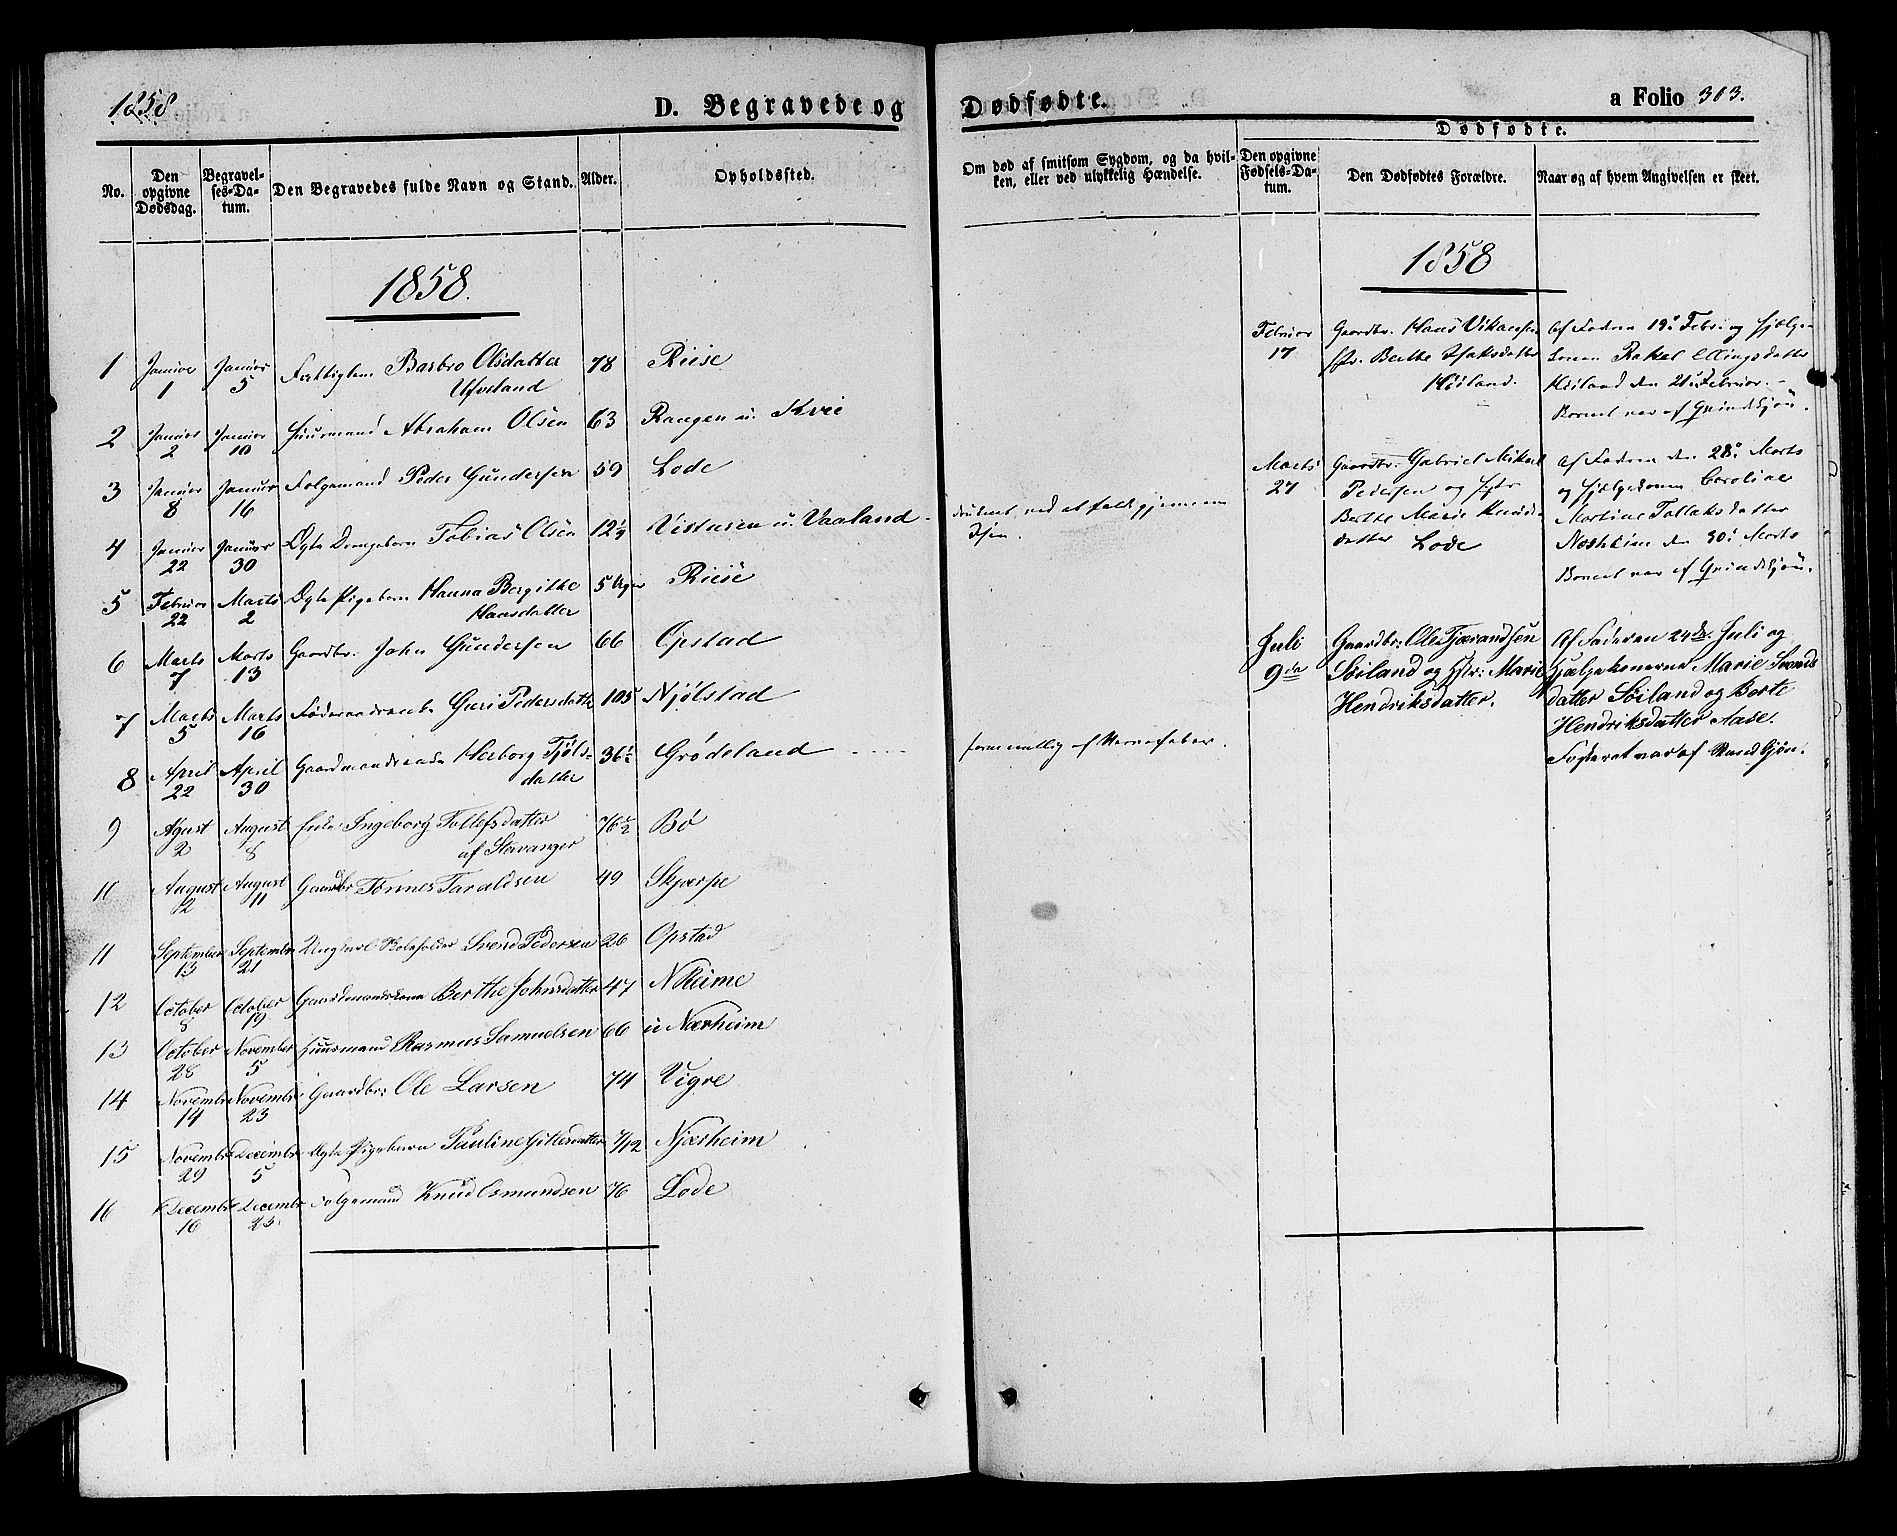 1858
D. Begravede og Dødfødte.
a Folio 303.
No.
Den opgivne Dødsdag.
Begravelses-Datum.
Den Begravedes fulde Navn og Stand.
Alder.
Opholdssted.
Om død af smitsom Sygdom, og da hvilken, eller ved ulykkelig Hændelse.
Dødfødte.
Den opgivne Fødsels-Datum.
Den Dødfødtes Forældre.
Naar og af hvem Angivelsen er skeet.
1858.
1 Januar 1 Januar 5 Fattiglem Barbro Olsdatter Ufveland 78 Riise
2 Januar 2 Januar 10 Huusmand Abraham Olsen 63 Raugen u. Kvie
3 Januar 8 Januar 16 Folgemand Peder Gundersen 59 Lode
4 Januar 22 Januar 30 Ægte Drengebarn Tobias Olsen 12 1/4 Vistnesen u. Vaaland - druknet ved at falde gjennem Isen.
5 Februar 22 Marts 2 Ægte Pigebarn Hanna Bergitte Hansdatter 5 Uger Riise
6 Marts 7 Marts 13 Gaardbr. John Gundersen 66 Opstad
7 Marts 5 Marts 16 Føderaadsenke Guri Pedersdatter 105 Njølstad
8 April 22 April 30 Gaardmandsenke Herborg Tjølsdatter 36 1/2 Grødeland formentlig af Nervefeber.
9 Agust 2 August 8 Enke Ingeborg Tollefsdatter af Stavanger 76 1/2 Bø
10 August 12 August 11 Gaardbr Tønnes Taraldsen 49 Skjærpe
11 September 13 Septembr 21 Ungkarl Svend Pedersen 26 Opstad
12 October 8 October 19 Gaardmandskona Berthe Johnsdatter 47 N Reime
13 October 28 November 5 Huusmand Rasmus Samuelsen 66 u Nærheim
14 Novembr 14 Novembr 23 Gaardbr: Ole Larsen 74 Vigre
15 Novembr 29 Decembr 5 Ægte Pigebarn Pauline Gitlesdatter 7/12 Njærheim
16 Decembr 16 Decembr 23 Folgemand Knud Osmundsen 76 Lode
1858
Februar 17
Gaardbr. Hans Vikansen
Hstr. Berthe Isaksdatter
Høiland.
Af Fadren 19de Febr. og Hjælpe
konen Rakel Ellingsdatter
Høiland den 21de Februar. -
Barnet var af Qvindekjøn.
Marts 27
Gaardbr. Gabriel Mikael
Pedersen og Hstr
Berthe Marie
datter Lode
Af Fadren den 28de Marts
og Hjælpekonen Caroline
Martine Tollaksdatter
Nærheim den 30de Marts
Barnet var af Qvindekjøn.
Juli 9de
Gaardbr: Ole Tjærandsen
Søiland og Hstr: Marie
Hendriksdatter.
Af Faderen 24de Juli og
Hjælpekonerne Marie Svends
datter Søiland og Berte
Hendriksdatter Aase.
Fosteret var af Mandkjøn.